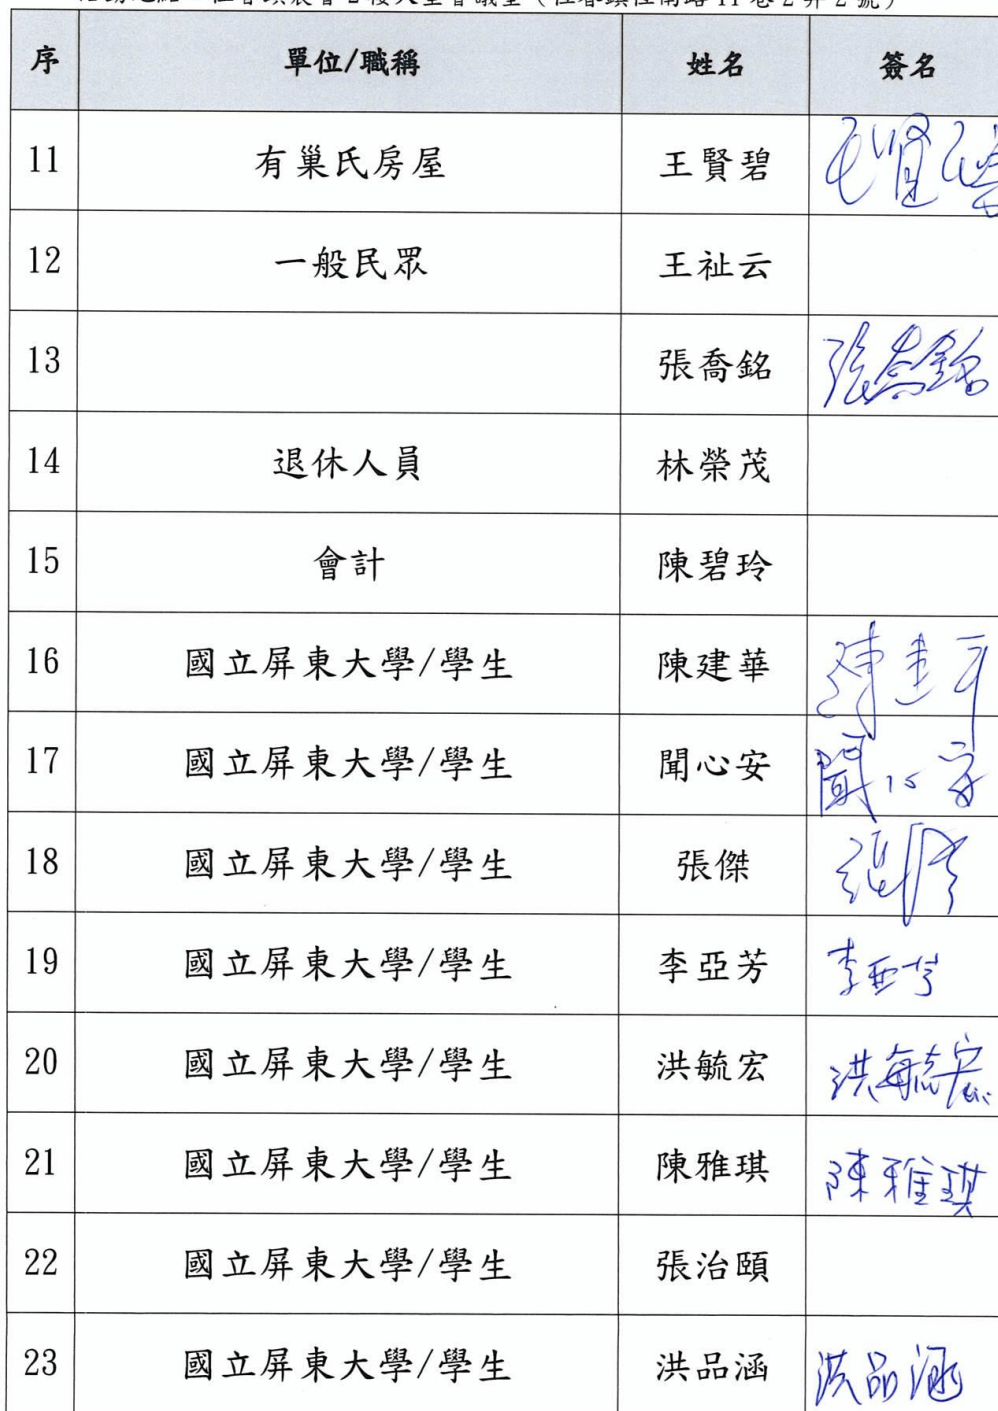 序 單位/職稱 姓名 簽名
11 有巢氏房屋 王賢碧
12 一般民眾 王祉云
13 張喬銘 張喬銘
14 退休人員 林榮茂
15 會計 陳碧玲
16 國立屏東大學/學生 陳建華
17 國立屏東大學/學生 聞心安 聞心安
18 國立屏東大學/學生 張傑
19 國立屏東大學/學生 李亞芳 李亞芳
20 國立屏東大學/學生 洪毓宏 洪毓宏
21 國立屏東大學/學生 陳雅琪 陳雅琪
22 國立屏東大學/學生 張治頤
23 國立屏東大學/學生 洪品涵 洪品涵